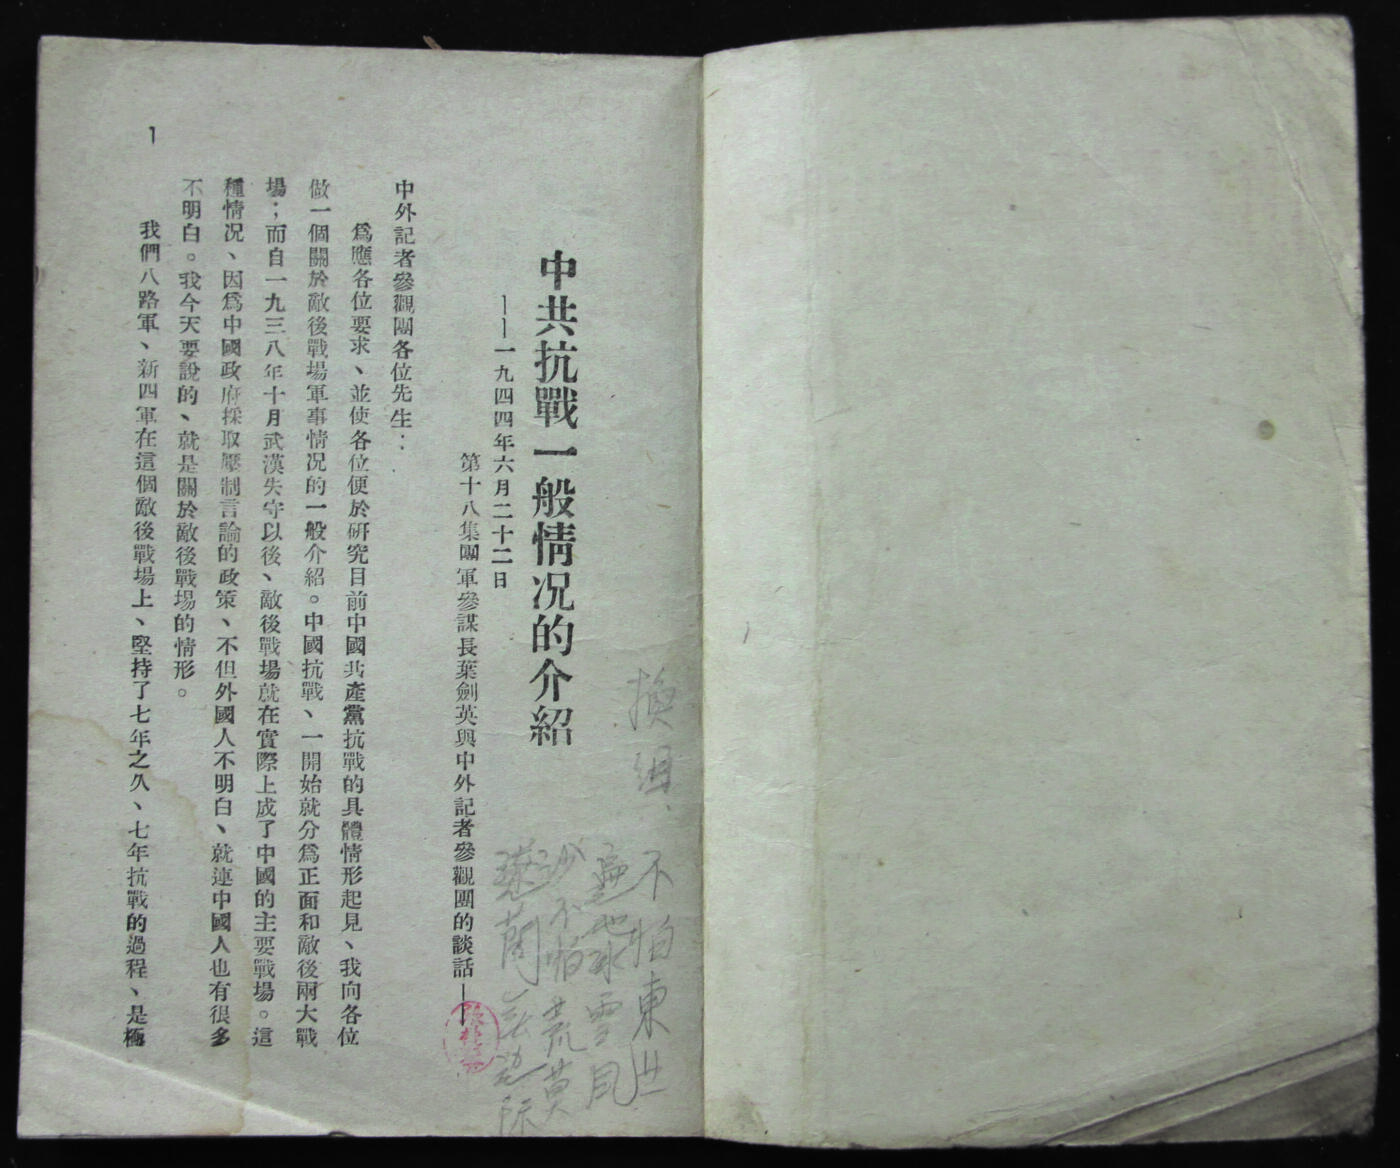 換組
不怕東
遍地冰雪風
沙不怕荒莫
中共抗戰一般情况的介紹
——一九四四年六月二十二日
第十八集團軍參謀長葉劍英與中外記者參觀團的談話——
中外記者參觀團各位先生：
爲應各位要求、並使各位便於研究目前中國共產黨抗戰的具體情形起見、我向各位
做一個關於敵後戰場軍事情况的一般介紹。中國抗戰、一開始就分爲正面和敵後兩大戰
場；而自一九三八年十月武漢失守以後、敵後戰場就在實際上成了中國的主要戰場。這
種情况、因爲中國政府採取壓制言論的政策、不但外國人不明白、就連中國人也有很多
不明白。我今天要說的、就是關於敵後戰場的情形。
我們八路軍、新四軍在這個敵後戰場上、堅持了七年之久、七年抗戰的過程、是極
1